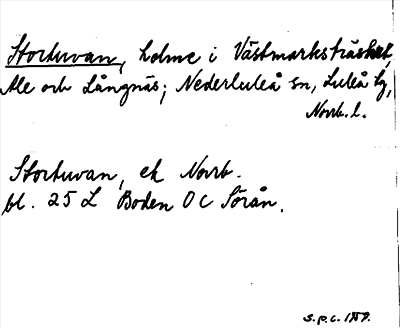 Stortuvan, holme i Västmarksträsket,
Ale och Långnäs; Nederluleå sn, Luleå tg,
Norrb. l.
Stortuvan, ek Norrb.
bl. 25 L Boden 0 c Sörån.
S.P.C.